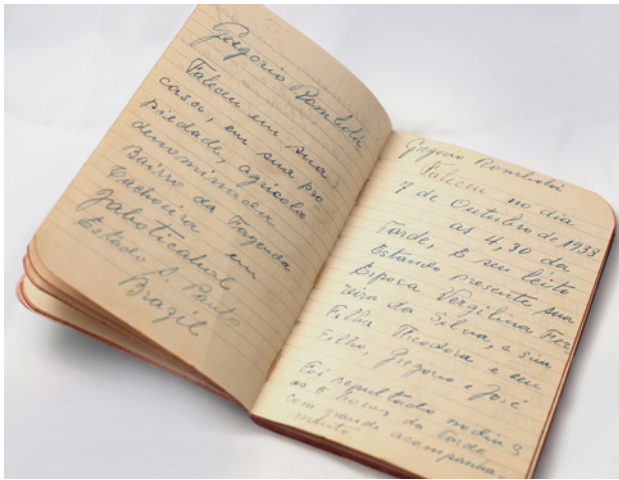 Gregorio Rombolá
Faleceu em sua
casa, em sua pro
piedade, agricola
denominada
Bairro da Fazenda
Cachoeira em
Jaboticabal
Estado S. Paulo
Brazil
Gregorio Rombolá
Faleceu no dia
7 de Outubro de 1933
as 4,30 da
tarde, E seu leito
Estando presente sua
Esposa Vergilina Fer
reira da Silva, e sua
Filha Theodora e seu
Filho, Gregorio e José
Foi sepultado no dia
as 5 horas da tarde
com grande acompanha-
mento